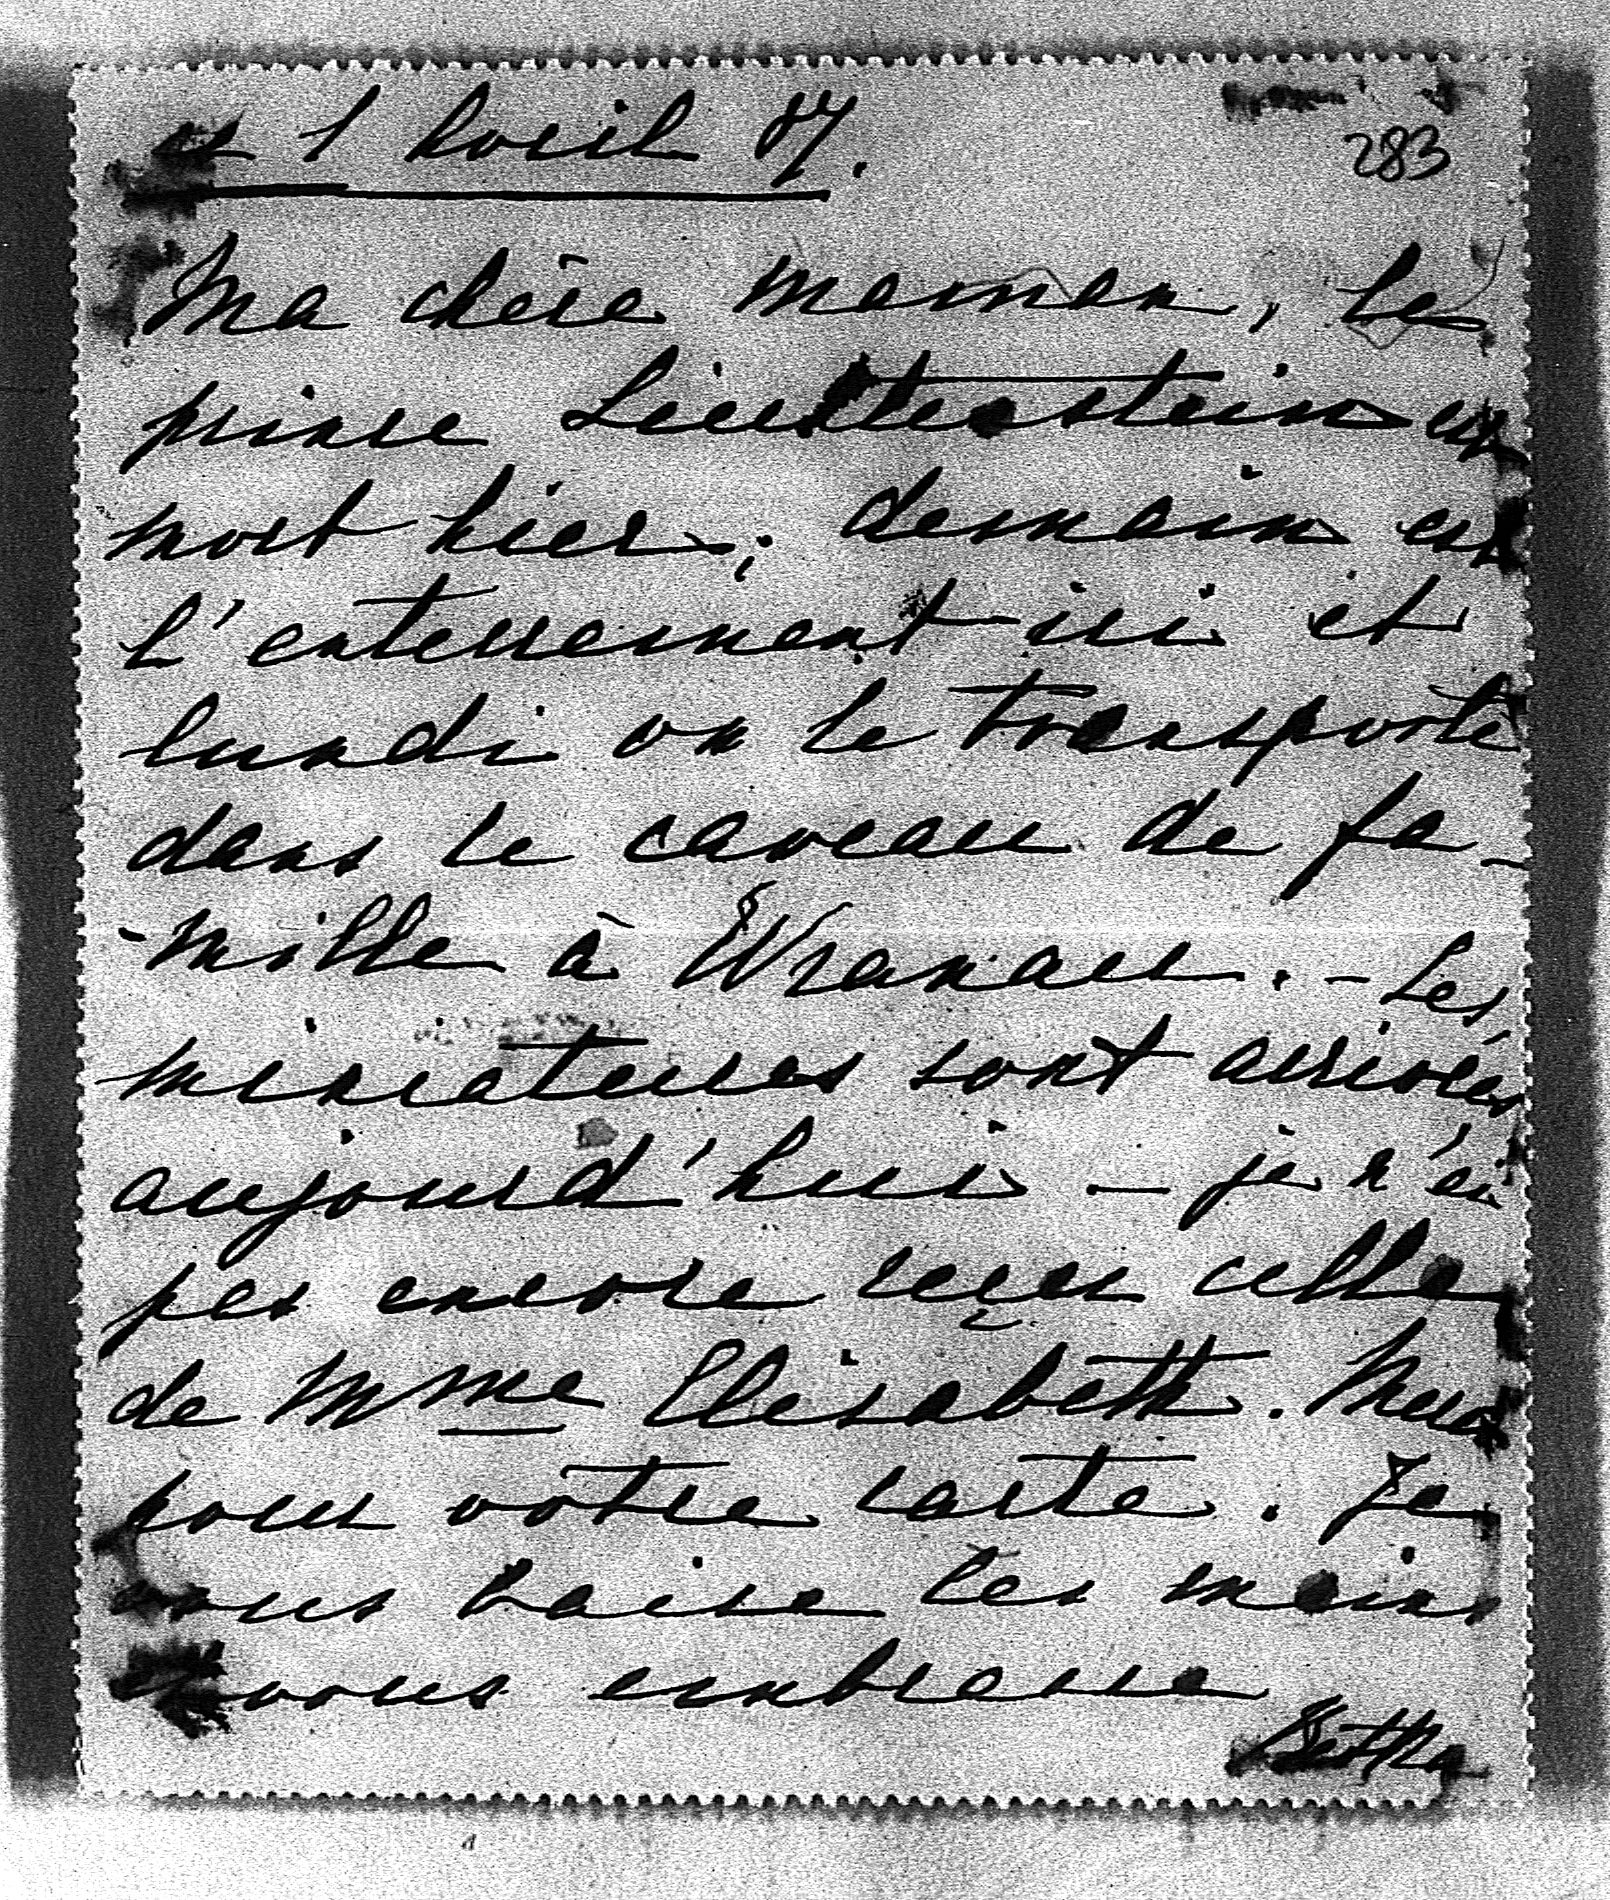 ce 1 Avril 87.
283
Ma chère maman, le
prince Liechtenstein est
mort hier; demain est
l'enterrement ici et
lundi on le transporte
dans le caveau de fa-
-mille à Wranau. - Les
miniatures sont arrivées
aujourd'hui - je n'ai
pas encore reçu celle
de Mme Elisabeth. Merci
pour votre carte. Je
vous baise les mains
vous embrasse
Bertha